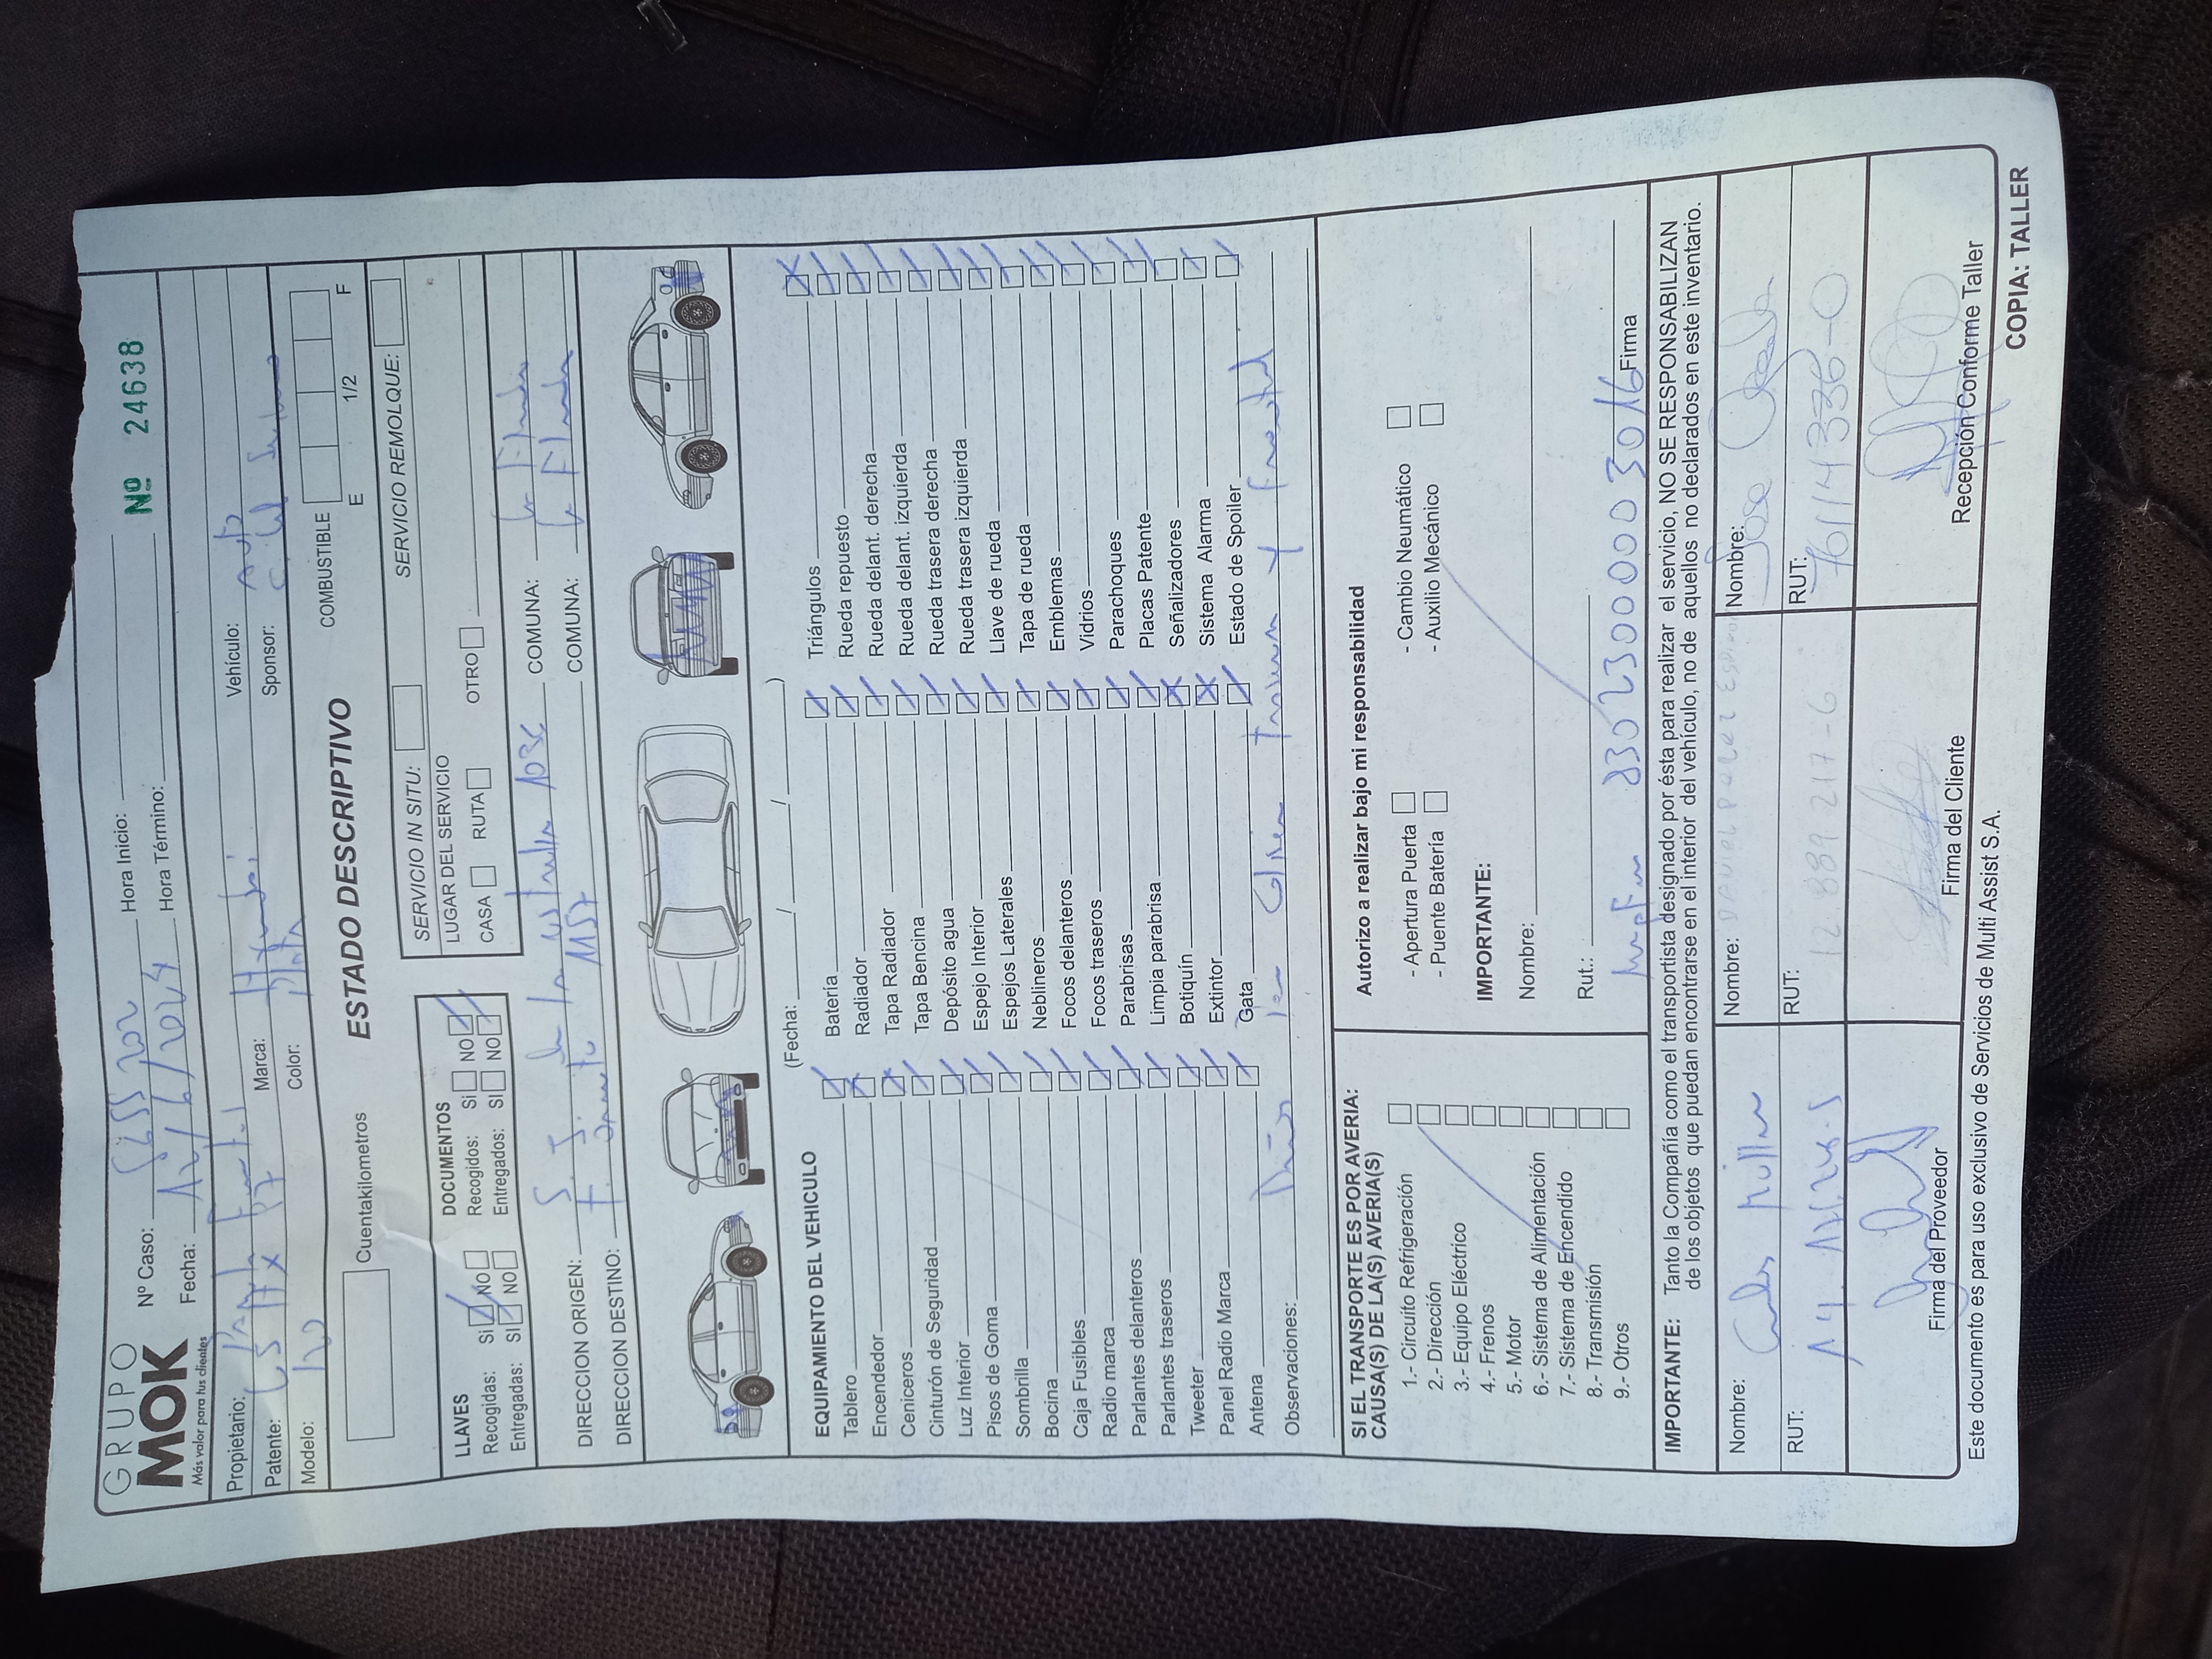 GRUPO
MOK
Más valor para tus clientes
Nº 24638
Nº Caso: Hora Inicio:
Fecha: 12/6/2024 Hora Término:
Propietario: Vehículo: Auto
Patente: Marca: Hyundai Sponsor:
Modelo: Color: Plata
ESTADO DESCRIPTIVO
Cuentakilometros
COMBUSTIBLE
E 1/2 F
LLAVES
Recogidas: Si NO
Entregadas: SI NO
DOCUMENTOS
Recogidos: Si NO
Entregados: SI NO
SERVICIO IN SITU:
SERVICIO REMOLQUE:
LUGAR DEL SERVICIO
CASA RUTA OTRO
DIRECCION ORIGEN: COMUNA: La Florida
DIRECCION DESTINO: COMUNA: La Florida
EQUIPAMIENTO DEL VEHICULO
(Fecha: / / )
Tablero
Encendedor
Ceniceros
Cinturón de Seguridad
Luz Interior
Pisos de Goma
Sombrilla
Bocina
Caja Fusibles
Radio marca
Parlantes delanteros
Parlantes traseros
Tweeter
Panel Radio Marca
Antena
Batería
Radiador
Tapa Radiador
Tapa Bencina
Depósito agua
Espejo Interior
Espejos Laterales
Neblineros
Focos delanteros
Focos traseros
Parabrisas
Limpia parabrisa
Botiquín
Extintor
Gata
Triángulos
Rueda repuesto
Rueda delant. derecha
Rueda delant. izquierda
Rueda trasera derecha
Rueda trasera izquierda
Llave de rueda
Tapa de rueda
Emblemas
Vidrios
Parachoques
Placas Patente
Señalizadores
Sistema Alarma
Estado de Spoiler
Observaciones: Daños por Colision Trasera y Frontal
SI EL TRANSPORTE ES POR AVERIA:
CAUSA(S) DE LA(S) AVERIA(S)
1.- Circuito Refrigeración
2.- Dirección
3.- Equipo Eléctrico
4.- Frenos
5.- Motor
6.- Sistema de Alimentación
7.- Sistema de Encendido
8.- Transmisión
9.- Otros
Autorizo a realizar bajo mi responsabilidad
- Apertura Puerta - Cambio Neumático
- Puente Batería - Auxilio Mecánico
IMPORTANTE:
Nombre:
Rut.: Firma
IMPORTANTE: Tanto la Compañía como el transportista designado por ésta para realizar el servicio, NO SE RESPONSABILIZAN
de los objetos que puedan encontrarse en el interior del vehículo, no de aquellos no declarados en este inventario.
Nombre:
RUT:
Firma del Proveedor
Nombre:
RUT: 12 889 217-6
Firma del Cliente
Nombre: Jose
RUT: 76114336-0
Recepción Conforme Taller
Este documento es para uso exclusivo de Servicios de Multi Assist S.A.
COPIA: TALLER